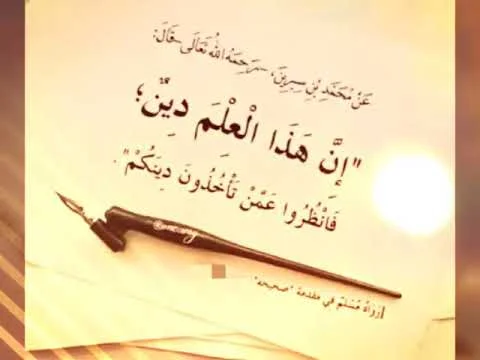 عَنْ مُحَمَّدِ بْنِ سِيرِينَ، رَحِمَهُ اللهُ تَعَالَى قَالَ:
"إِنَّ هَذَا الْعِلْمَ دِينٌ؛
فَانْظُرُوا عَمَّنْ تَأْخُذُونَ دِينَكُمْ".
[رَوَاهُ مُسْلِمٌ فِي مُقَدِّمَةِ "صَحِيحِهِ"